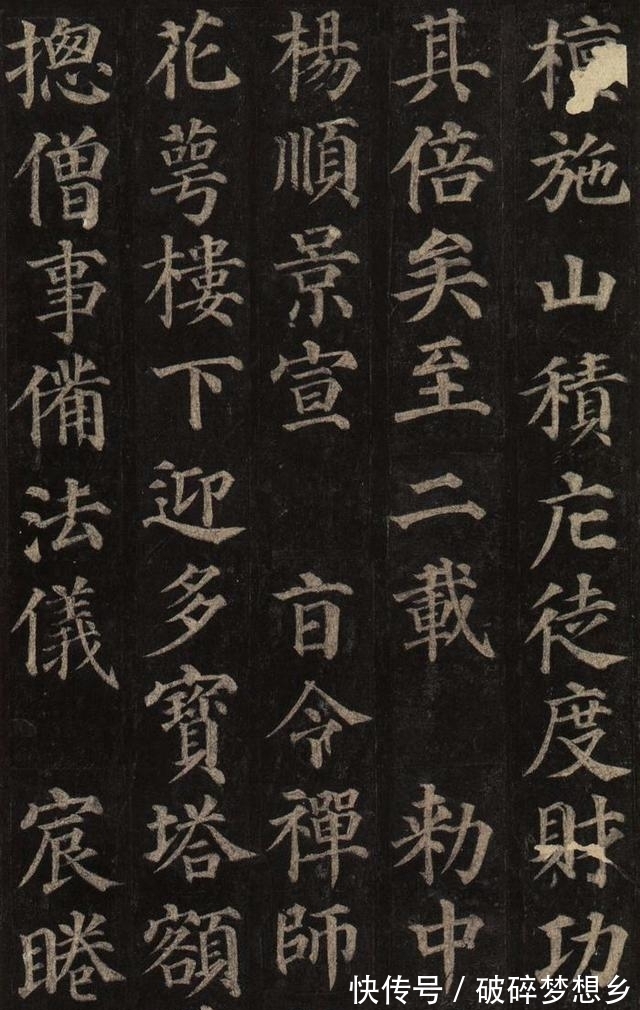 檀施山積庀徒度財功
其倍矣至二載勅中
楊順景宣㫖令禪師
花萼樓下迎多寶塔額
摠僧事備法儀宸睠
快传号 / 破碎梦想乡